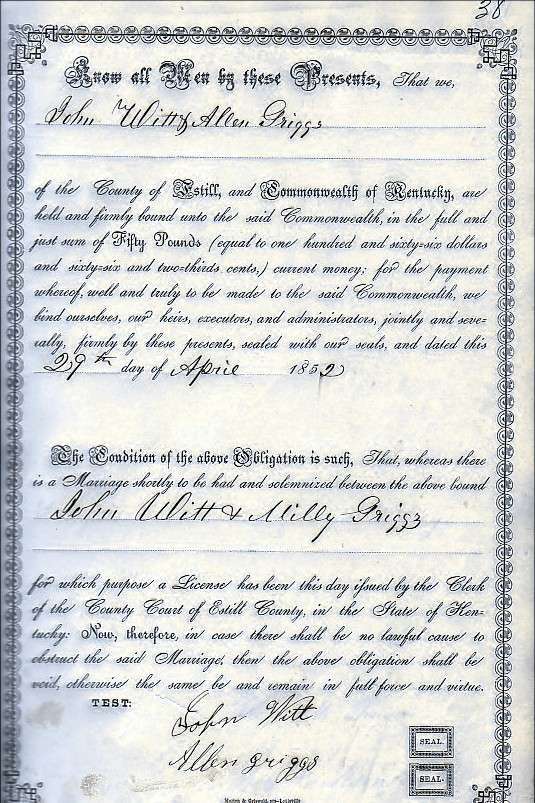 38
Know all Men by these Presents, That we,
John Witt & Allen Griggs
of the County of Estill, and Commonwealth of Kentucky, are
held and firmly bound unto the said Commonwealth, in the full and
just sum of Fifty Pounds (equal to one hundred and sixty-six dollars
and sixty-six and two-thirds cents,) current money; for the payment
whereof, well and truly to be made to the said Commonwealth, we
bind ourselves, our heirs, executors, and administrators, jointly and seve-
rally, firmly by these presents, sealed with our seals, and dated this
29th day of April 1852
The Condition of the above Obligation is such, That, whereas there
is a Marriage shortly to be had and solemnized between the above bound
John Witt & Milly Griggs
for which purpose a License has been this day issued by the Clerk
of the County Court of Estill County, in the State of Ken-
tucky: Now, therefore, in case there shall be no lawful cause to
obstruct the said Marriage, then the above obligation shall be
void, otherwise the same be and remain in full force and virtue.
TEST:
John Witt
Allen griggs
SEAL.
SEAL.